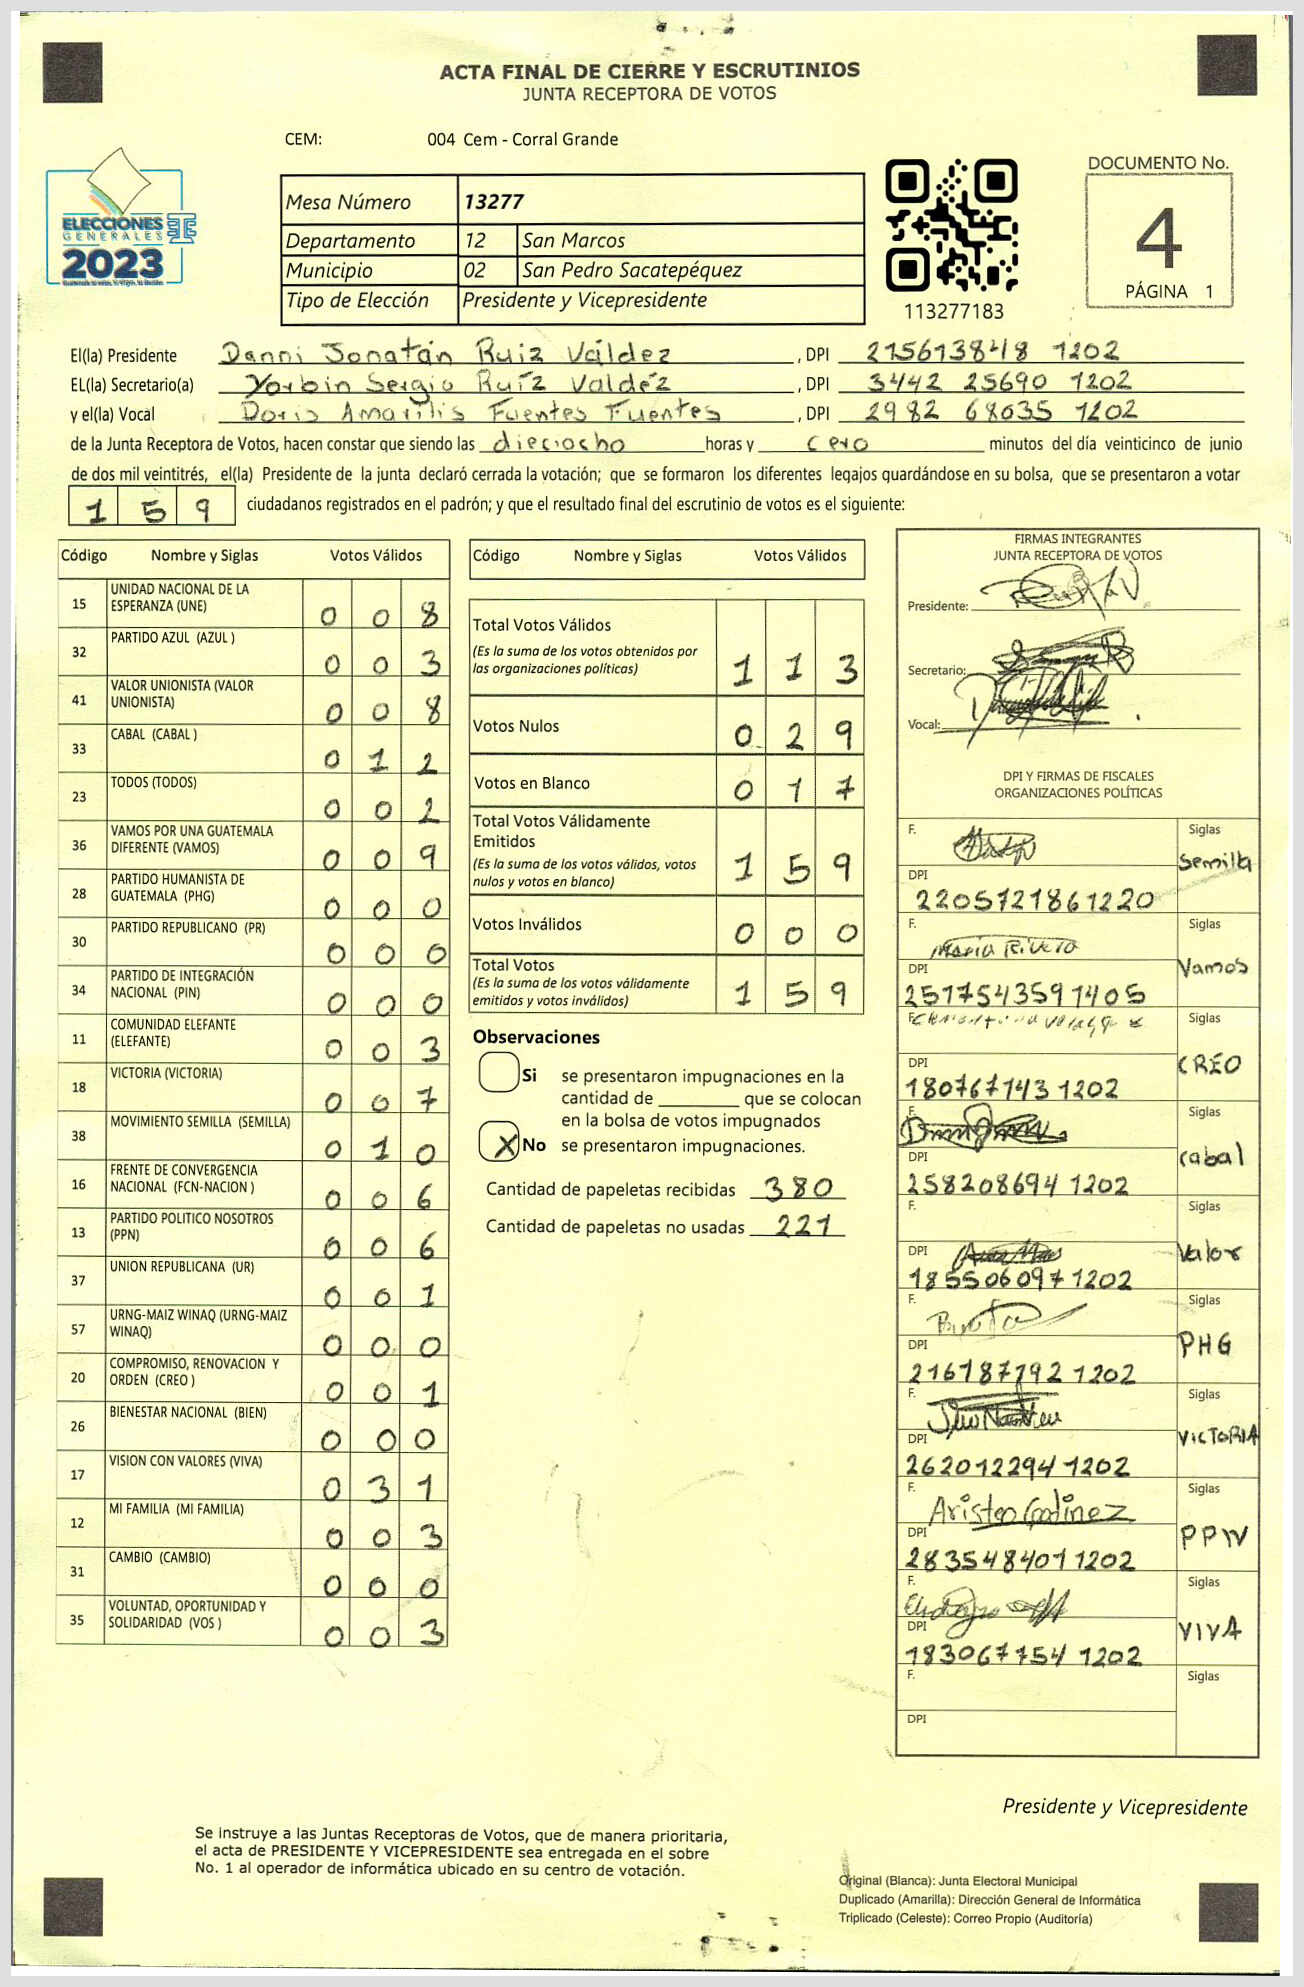 ACTA FINAL DE CIERRE Y ESCRUTINIOS
JUNTA RECEPTORA DE VOTOS
CEM: 004 Cem - Corral Grande
ELECCIONES
GENERALES
2023
Mesa Número 13277
Departamento 12 San Marcos
Municipio 02 San Pedro Sacatepéquez
Tipo de Elección Presidente y Vicepresidente
113277183
DOCUMENTO No.
4
PÁGINA 1
El(la) Presidente Danni Jonatán Ruiz Váldez, DPI 215613848 1202
EL(la) Secretario(a) Yorbin Sergio Ruíz Valdéz, DPI 3442 25690 1202
y el(la) Vocal Doris Amarilis Fuentes Fuentes, DPI 2982 68035 1202
de la Junta Receptora de Votos, hacen constar que siendo las dieciocho horas y cero minutos del día veinticinco de junio
de dos mil veintitrés, el(la) Presidente de la junta declaró cerrada la votación; que se formaron los diferentes legajos quardándose en su bolsa, que se presentaron a votar
1 5 9 ciudadanos registrados en el padrón; y que el resultado final del escrutinio de votos es el siguiente:
Código Nombre y Siglas Votos Válidos
15 UNIDAD NACIONAL DE LA ESPERANZA (UNE) 0 0 8
32 PARTIDO AZUL (AZUL ) 0 0 3
41 VALOR UNIONISTA (VALOR UNIONISTA) 0 0 8
33 CABAL (CABAL ) 0 1 2
23 TODOS (TODOS) 0 0 2
36 VAMOS POR UNA GUATEMALA DIFERENTE (VAMOS) 0 0 9
28 PARTIDO HUMANISTA DE GUATEMALA (PHG) 0 0 0
30 PARTIDO REPUBLICANO (PR) 0 0 0
34 PARTIDO DE INTEGRACIÓN NACIONAL (PIN) 0 0 0
11 COMUNIDAD ELEFANTE (ELEFANTE) 0 0 3
18 VICTORIA (VICTORIA) 0 0 7
38 MOVIMIENTO SEMILLA (SEMILLA) 0 1 0
16 FRENTE DE CONVERGENCIA NACIONAL (FCN-NACION ) 0 0 6
13 PARTIDO POLITICO NOSOTROS (PPN) 0 0 6
37 UNION REPUBLICANA (UR) 0 0 1
57 URNG-MAIZ WINAQ (URNG-MAIZ WINAQ) 0 0 0
20 COMPROMISO, RENOVACION Y ORDEN (CREO ) 0 0 1
26 BIENESTAR NACIONAL (BIEN) 0 0 0
17 VISION CON VALORES (VIVA) 0 3 1
12 MI FAMILIA (MI FAMILIA) 0 0 3
31 CAMBIO (CAMBIO) 0 0 0
35 VOLUNTAD, OPORTUNIDAD Y SOLIDARIDAD (VOS ) 0 0 3
Código Nombre y Siglas Votos Válidos
Total Votos Válidos
(Es la suma de los votos obtenidos por
las organizaciones políticas) 1 1 3
Votos Nulos 0 2 9
Votos en Blanco 0 1 7
Total Votos Válidamente
Emitidos
(Es la suma de los votos válidos, votos
nulos y votos en blanco) 1 5 9
Votos Inválidos 0 0 0
Total Votos
(Es la suma de los votos válidamente
emitidos y votos inválidos) 1 5 9
Observaciones
Si se presentaron impugnaciones en la
cantidad de ________ que se colocan
en la bolsa de votos impugnados
X No se presentaron impugnaciones.
Cantidad de papeletas recibidas 380
Cantidad de papeletas no usadas 221
FIRMAS INTEGRANTES
JUNTA RECEPTORA DE VOTOS
Presidente:
Secretario:
Vocal:
DPI Y FIRMAS DE FISCALES
ORGANIZACIONES POLÍTICAS
F. Siglas
Semilla
DPI
2205721861220
F. Maria Rivera Siglas
Vamos
DPI
2517543591405
F. Siglas
CREO
DPI
180767143 1202
F. Siglas
Cabal
DPI
258208694 1202
F. Siglas
Valor
DPI
185506097 1202
F. Siglas
PHG
DPI
216187792 1202
F. Siglas
VICTORIA
DPI
262012294 1202
F. Aristeo Godinez Siglas
PPN
DPI
283548401 1202
F. Siglas
VIVA
DPI
183067754 1202
F. Siglas
DPI
Presidente y Vicepresidente
Se instruye a las Juntas Receptoras de Votos, que de manera prioritaria,
el acta de PRESIDENTE Y VICEPRESIDENTE sea entregada en el sobre
No. 1 al operador de informática ubicado en su centro de votación.
Original (Blanca): Junta Electoral Municipal
Duplicado (Amarilla): Dirección General de Informática
Triplicado (Celeste): Correo Propio (Auditoría)